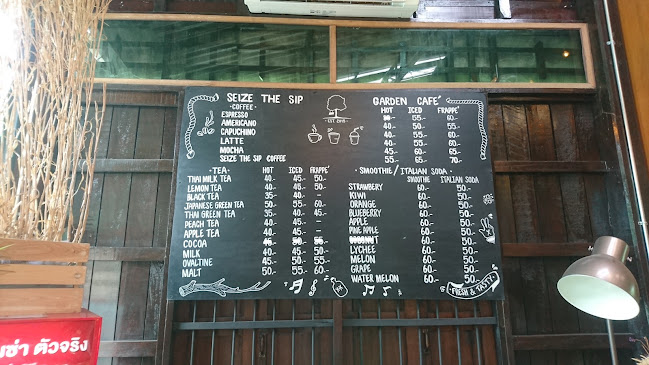 SEIZE THE SIP
GARDEN CAFE'
EST 2015
·COFFEE· HOT ICED FRAPPE'
ESPRESSO 55.- 60.-
AMERICANO 40.- 55.-
CAPUCHINO 40.- 55.- 60.-
LATTE 40.- 55.- 60.-
MOCHA 45.- 60.- 65.-
SEIZE THE SIP COFFEE 55.- 65.- 70.-
·TEA· HOT ICED FRAPPE'
THAI MILK TEA 40.- 45.- 50.-
LEMON TEA 40.- 45.- 50.-
BLACK TEA 35.- 40.- —
JAPANESE GREEN TEA 50.- 55.- 60.-
THAI GREEN TEA 35.- 40.- 45.-
PEACH TEA 40.- 45.- —
APPLE TEA 40.- 45.- —
COCOA
MILK 40.- 45.- 50.-
OVALTINE 45.- 50.- 55.-
MALT 50.- 55.- 60.-
·SMOOTHIE/ITALIAN SODA·
SMOOTHIE ITALIAN SODA
STRAWBERRY 60.- 50.-
KIWI 60.- 50.-
ORANGE 60.- 50.-
BLUEBERRY 60.- 50.-
APPLE 60.- 50.-
PINE APPLE 60.- 50.-
LYCHEE 60.- 50.-
MELON 60.- 50.-
GRAPE 60.- 50.-
WATER MELON 60.- 50.-
FRESH & TASTY
ซ่า ตัวจริง